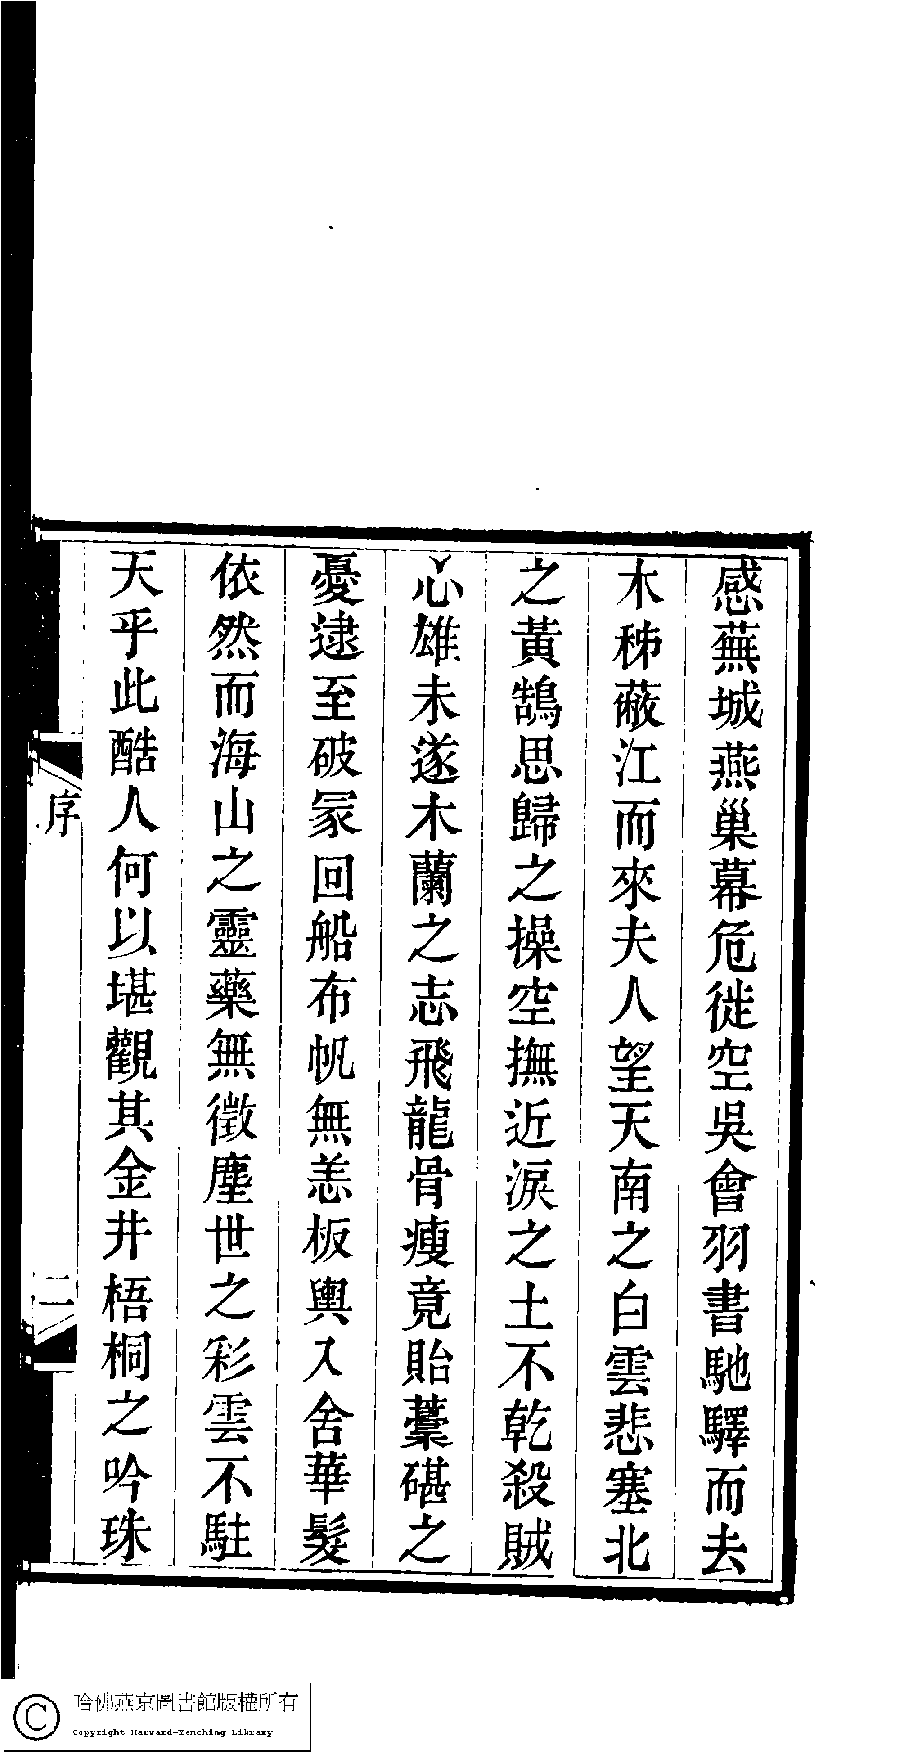 感蕪城燕巢幕危徙空吳會羽書馳驛而去
木秭蔽江而來夫人望天南之白雲悲塞北
之黃鵠思歸之操空撫近淚之土不乾殺賊
心雄未遂木蘭之志飛龍骨瘦竟貽藁碪之
憂逮至破冢回船布帆無恙板輿入舍華髮
依然而海山之靈藥無徵塵世之彩雲不駐
天乎此酷人何以堪觀其金井梧桐之吟珠
序
二
哈佛燕京圖書館版權所有
Copyright Harvard-Yenching Library